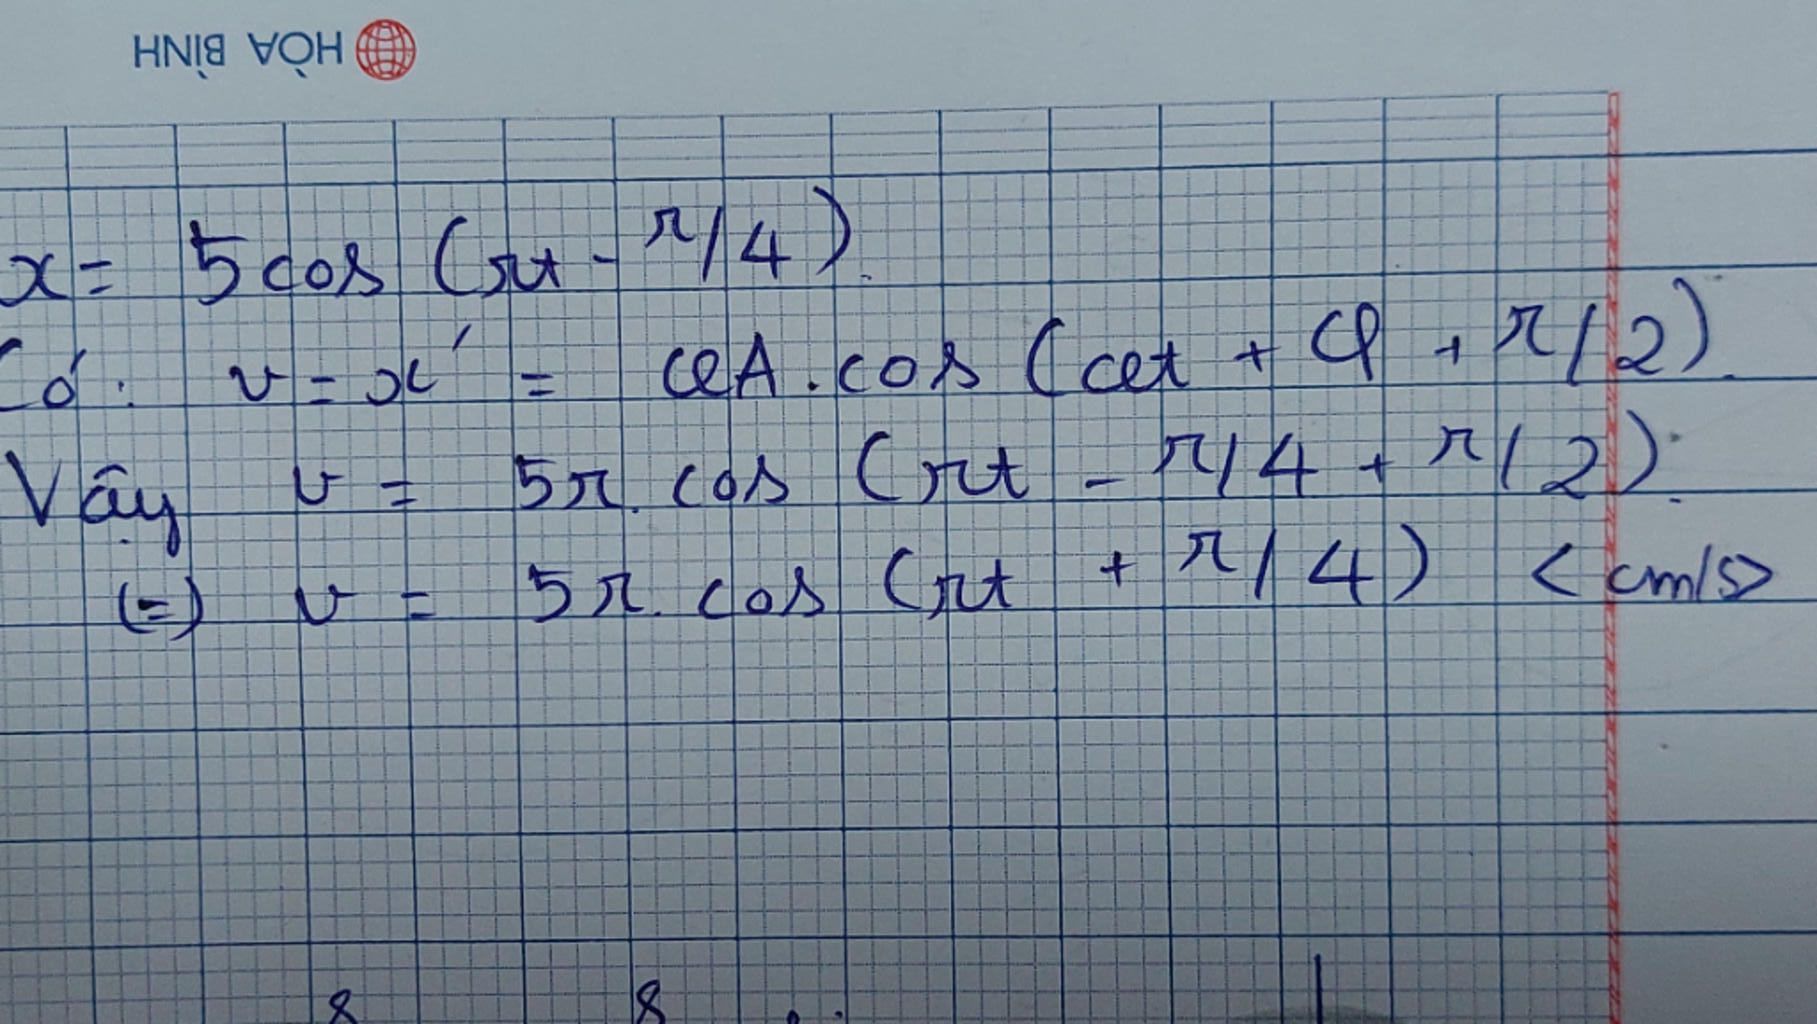 HÒA BÌNH
x = 5 cos (πt - π/4).
Có: v = x' = ωA.cos (ωt + φ + π/2).
Vậy v = 5π.cos (πt - π/4 + π/2).
(=) v = 5π.cos (πt + π/4) <cm/s>
8 8